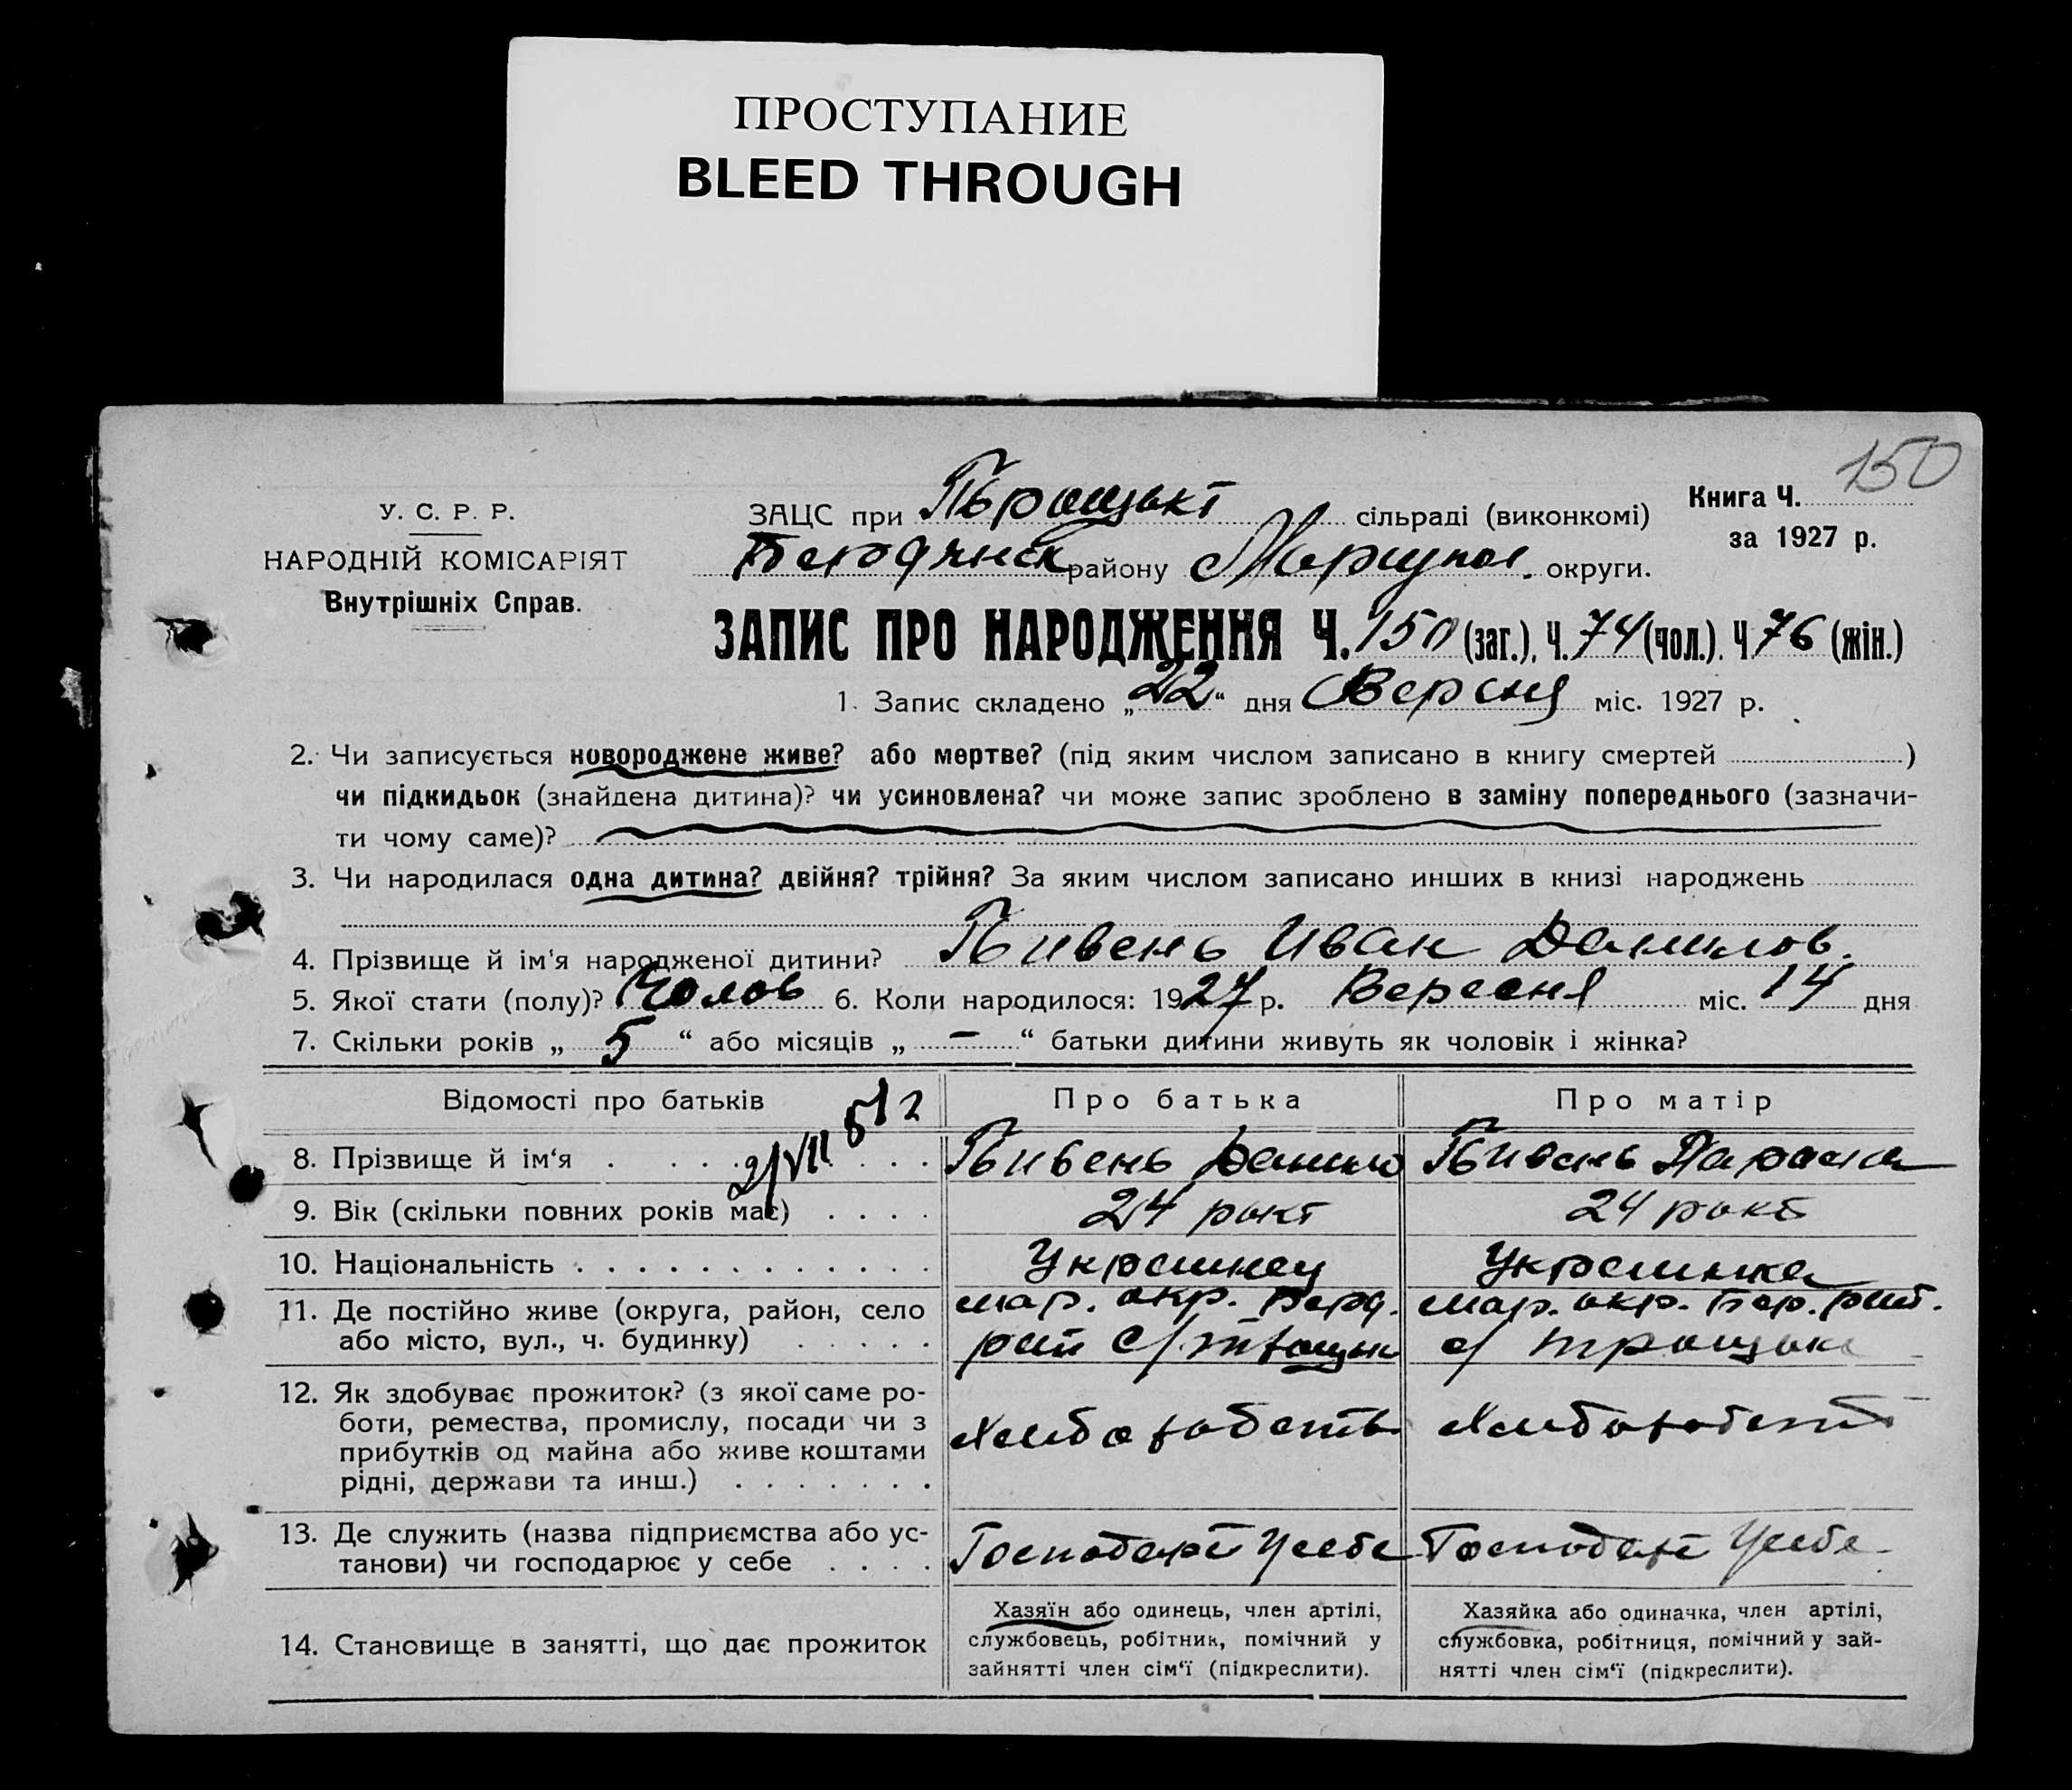 ПРОСТУПАНИЕ
BLEED THROUGH
150
У. С. Р. Р.
НАРОДНІЙ КОМІСАРІЯТ
Внутрішніх Справ.
ЗАЦС при Троцькі сільраді (виконкомі)
Книга Ч.
за 1927 р.
Бердянськ району Маріупол. округи.
ЗАПИС ПРО НАРОДЖЕННЯ Ч. 150 (заг.), Ч. 74 (чол.). Ч 76 (жін.)
1. Запис складено „22“ дня Версня міс. 1927 р.
2. Чи записується новороджене живе? або мертве? (під яким числом записано в книгу смертей )
чи підкидьок (знайдена дитина)? чи усиновлена? чи може запис зроблено в заміну попереднього (зазначи-
ти чому саме)?
3. Чи народилася одна дитина? двійня? трійня? За яким числом записано инших в книзі народжень
4. Прізвище й ім'я народженої дитини? Пивень Иван Данилов.
5. Якої стати (полу)? Чолов 6. Коли народилося: 1927 р. Вересня міс. 14 дня
7. Скільки років „ 5 “ або місяців „ — “ батьки дитини живуть як чоловік і жінка?
Відомості про батьків Про батька Про матір
8. Прізвище й ім‘я Пивень Данило Пивень Параска
9. Вік (скільки повних років має) 24 рокі 24 рокі
10. Національність Украинец Украинка
11. Де постійно живе (округа, район, село мар. окр. Берд. мар. окр. Бер. рай.
або місто, вул., ч. будинку) рай с/ с/ троцьке
12. Як здобуває прожиток? (з якої саме ро-
боти, ремества, промислу, посади чи з
прибутків од майна або живе коштами
рідні, держави та инш.)
13. Де служить (назва підприємства або ус-
танови) чи господарює у себе Господарі Усебе Господарі Усебе
14. Становище в занятті, що дає прожиток
Хазяїн або одинець, член артілі,
службовець, робітник, помічний у
зайнятті член сім‘ї (підкреслити).
Хазяйка або одиначка, член артілі,
службовка, робітниця, помічний у зай-
нятті член сім‘ї (підкреслити).